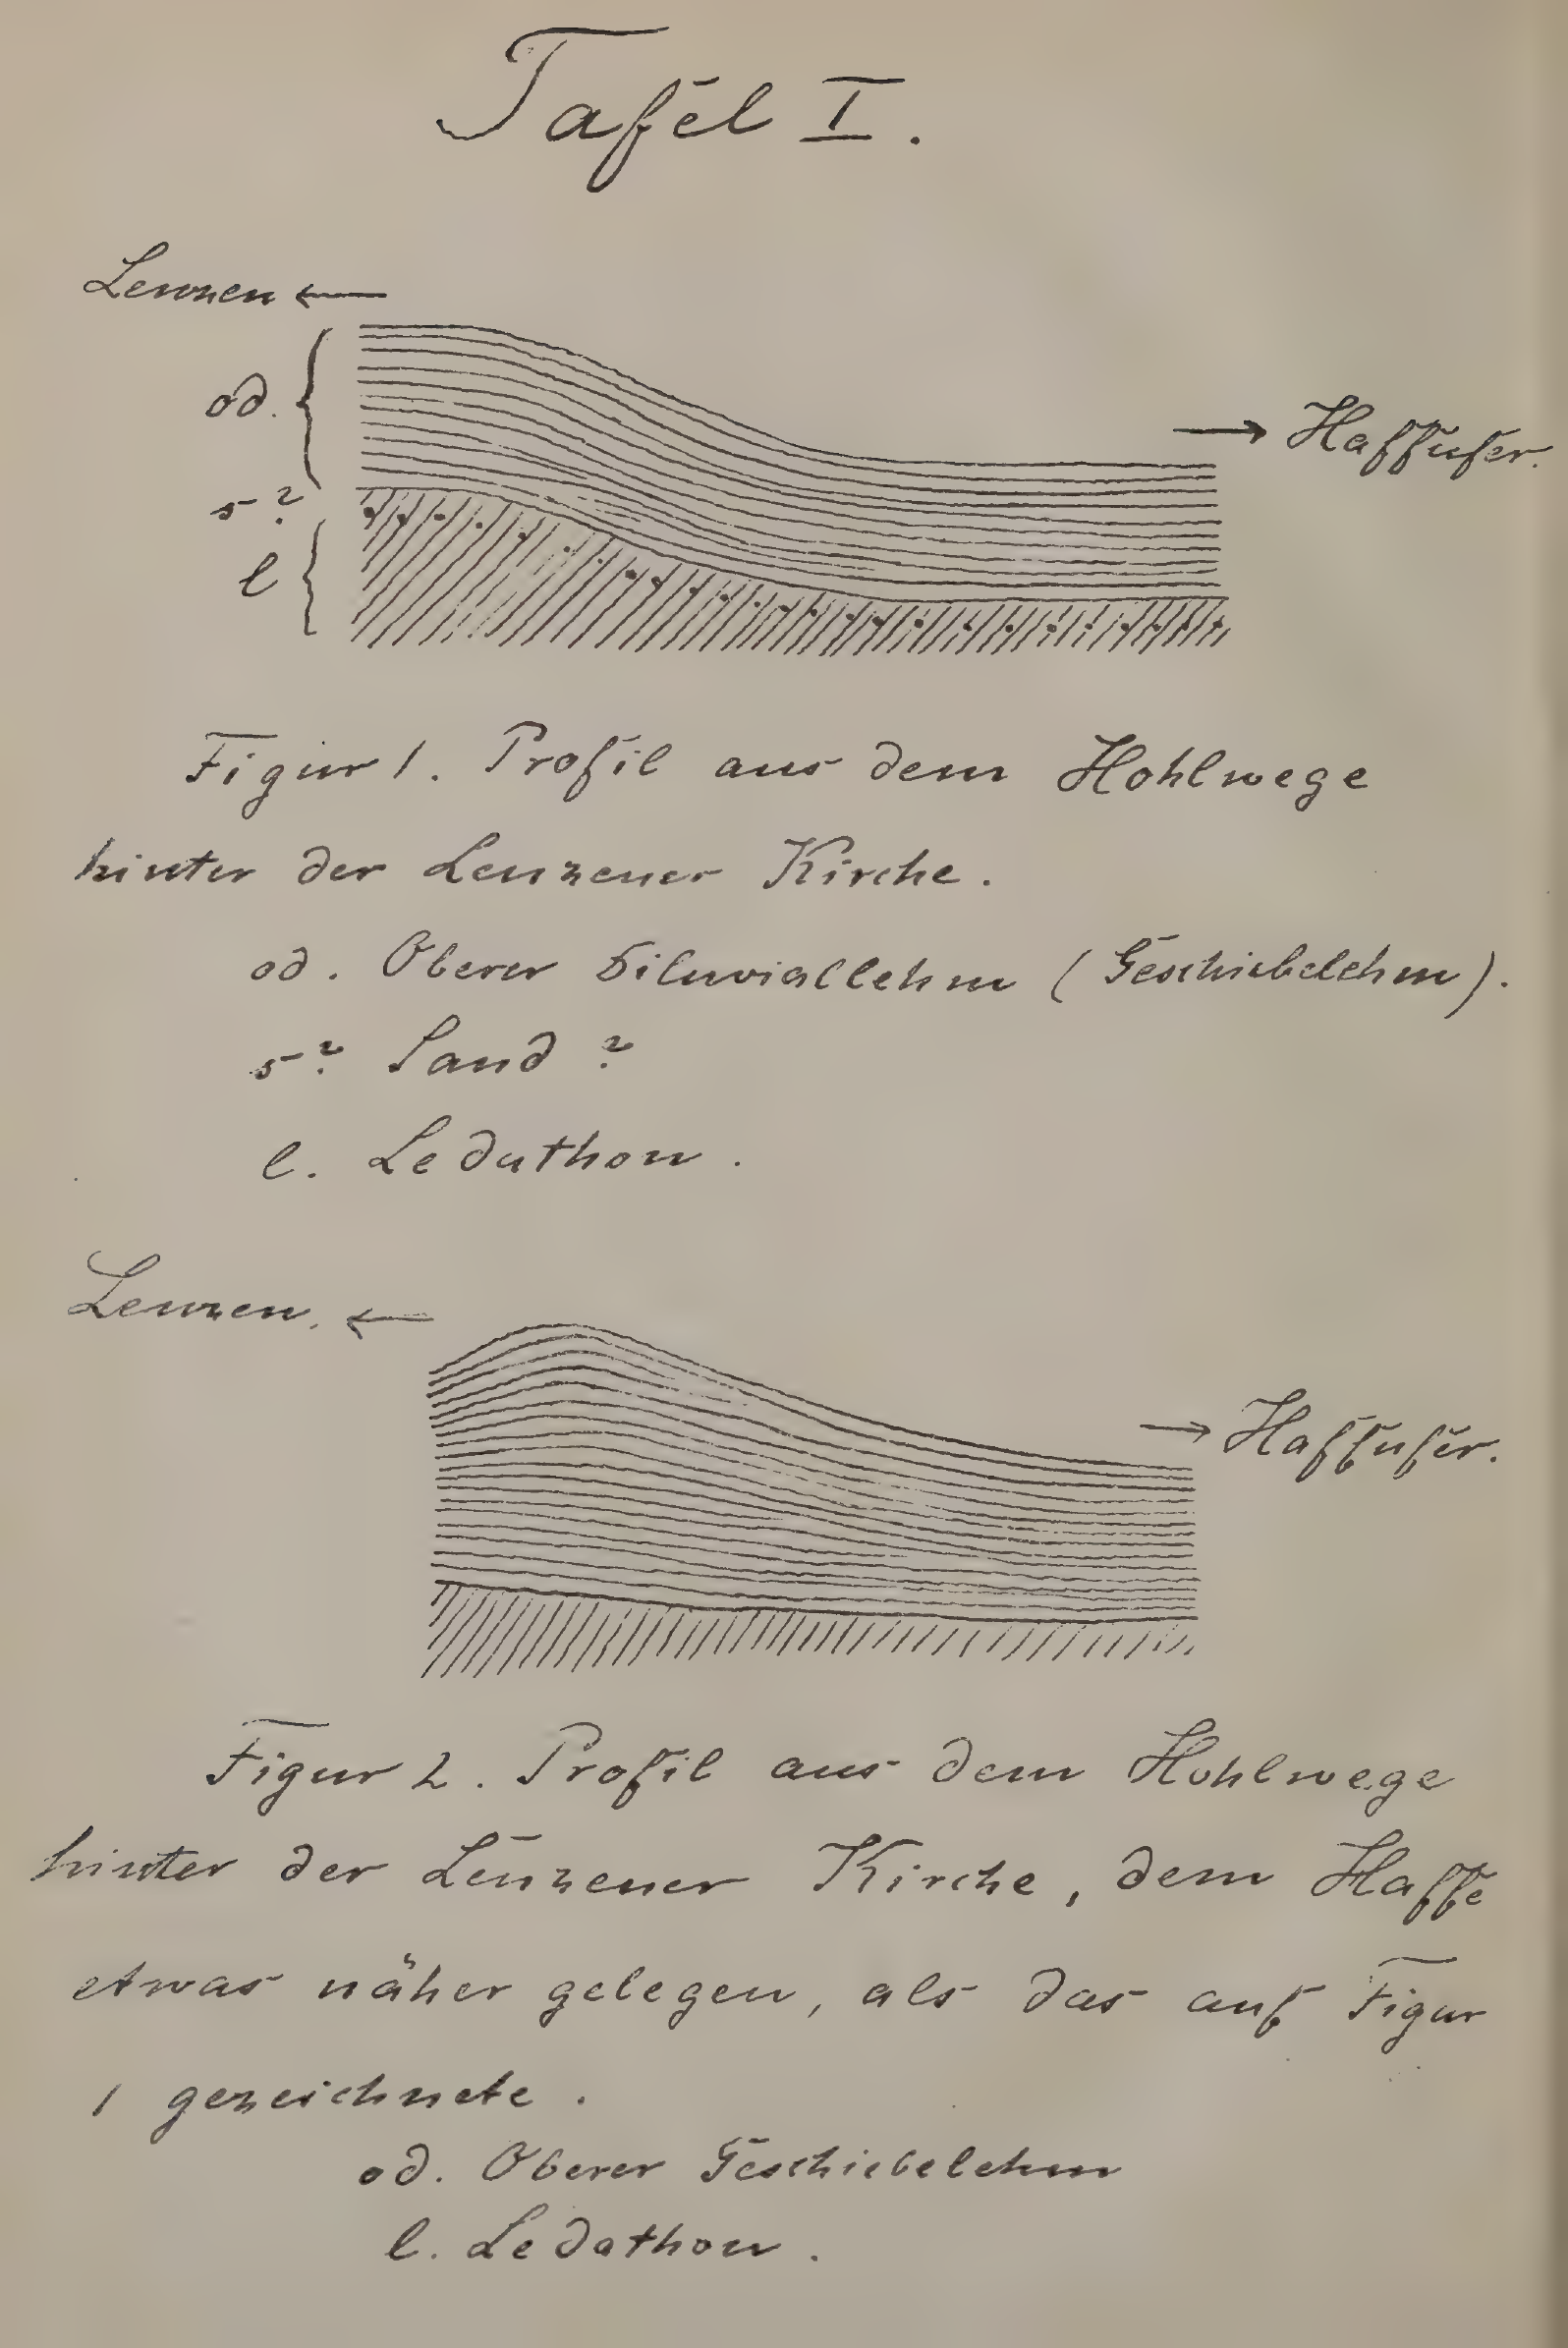 Tafel I.
Lenzen ←
od.
→ Haffufer.
s?
l
Figur 1. Profil aus dem Hohlwege
hinter der Lenzener Kirche.
od. Oberer Diluviallehm (Geschiebelehm).
s? Sand ?
l. Ledathon.
Lenzen. ←
→ Haffufer.
Figur 2. Profil aus dem Hohlwege
hinter der Lenzener Kirche, dem Haffe
etwas näher gelegen, als das auf Figur
1 gezeichnete.
od. Oberer Geschiebelehm
l. Ledathon.